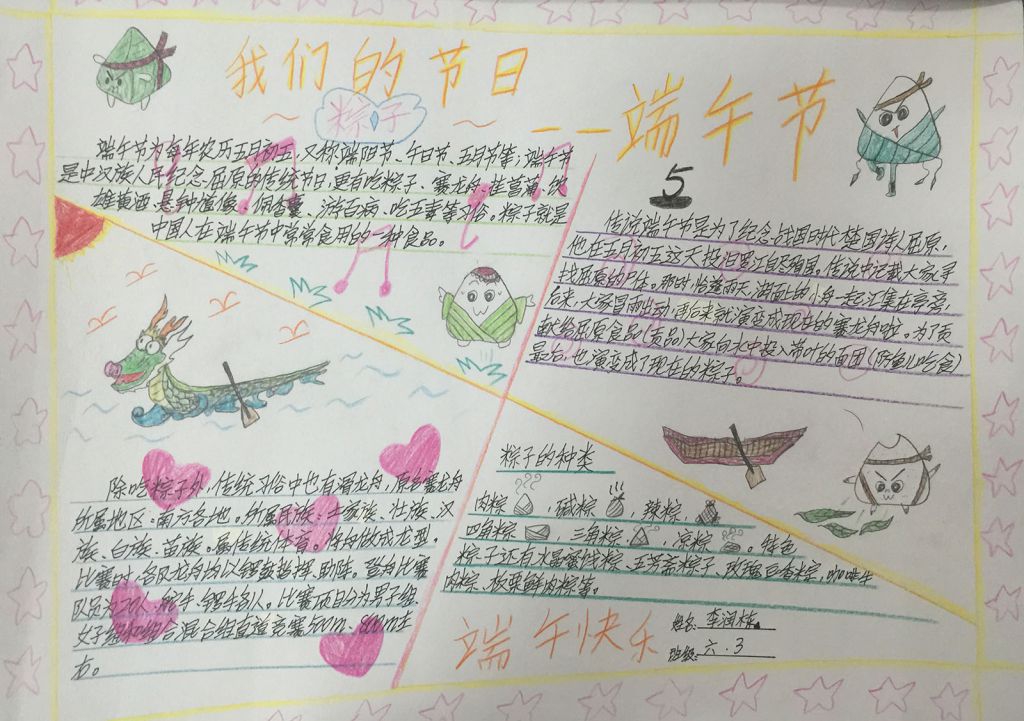 我们的节日
~ 粽子 ~
——端午节
端午节为每年农历五月初五,又称端阳节、午日节、五月节等,端午节
是中汉族人民纪念屈原的传统节日,更有吃粽子、赛龙舟、挂菖蒲、饮
雄黄酒、悬钟馗像、佩香囊、游百病、吃五毒等习俗。粽子就是
中国人在端午节中常常食用的一种食品。
5
传说端午节是为了纪念战国时代楚国诗人屈原,
他在五月初五这天投汨罗江自尽殉国。传说中记载大家寻
找屈原的尸体。那时,恰逢雨天,湖面上的小舟一起汇集在亭旁。
后来,大家冒雨出动,后来就演变成现在的赛龙舟啦。为了贡
献给屈原食品(贡品)大家向水中投入带叶的面团(防鱼儿吃食)
最后,也演变成了现在的粽子。
除吃粽子外,传统习俗中也有滑龙舟,原名赛龙舟
所属地区:南方各地。所属民族:土家族、壮族、汉
族、白族、苗族。属传统体育。将舟做成龙型。
比赛时,各队龙舟均以锣鼓指挥、助阵。登舟比赛
队员为20人,舵手、锣手各1人。比赛项目分为男子组、
女子组和组合混合组直道竞赛500m、800m左
右。
粽子的种类
肉粽,碱粽,辣粽,
四角粽,三角粽,凉粽。特色
粽子还有水晶蛋饯粽、五芳斋粽子、玫瑰豆香粽,咖啡牛
肉粽、板栗鲜肉粽等。
端午快乐
姓名:李润栋
班级:六.3